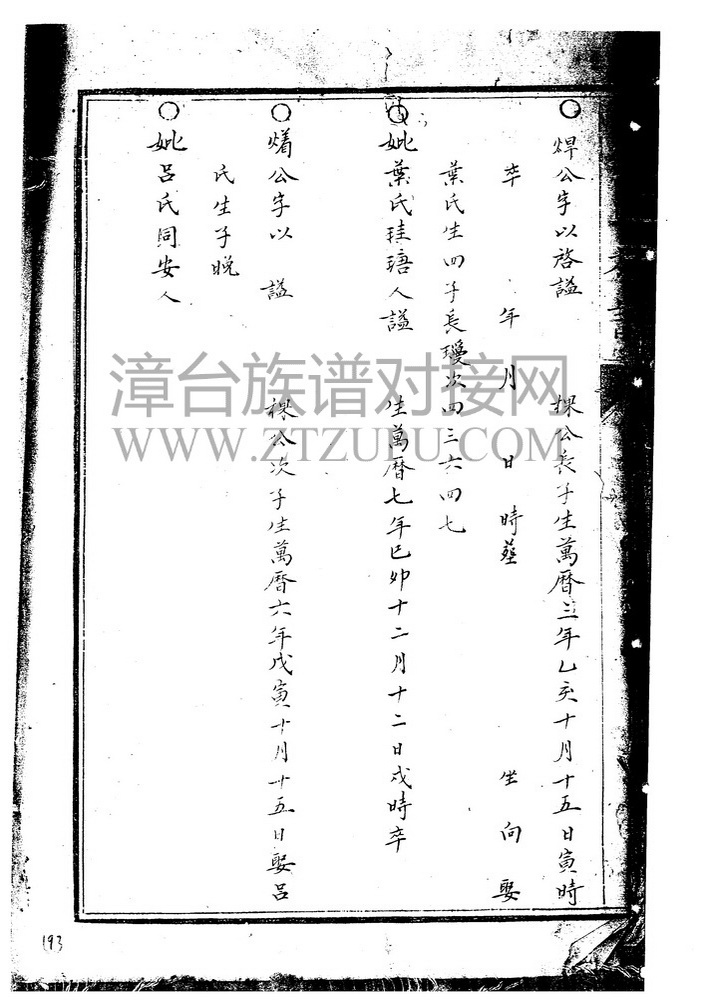 ○焊公字以啓謚 操公長子生萬曆三年乙亥十月十五日寅時
卒 年 月 日時葬 坐 向 娶
葉氏生四子長璦次四三六四七
○妣葉氏珪瑭人謚 生萬曆七年己卯十二月十二日戌時卒
○公字以 謚 公次子生萬曆六年戊寅十月廿五日娶呂
氏生子晚
○妣呂氏同安人
漳台族谱对接网
WWW.ZTZUPU.COM
193